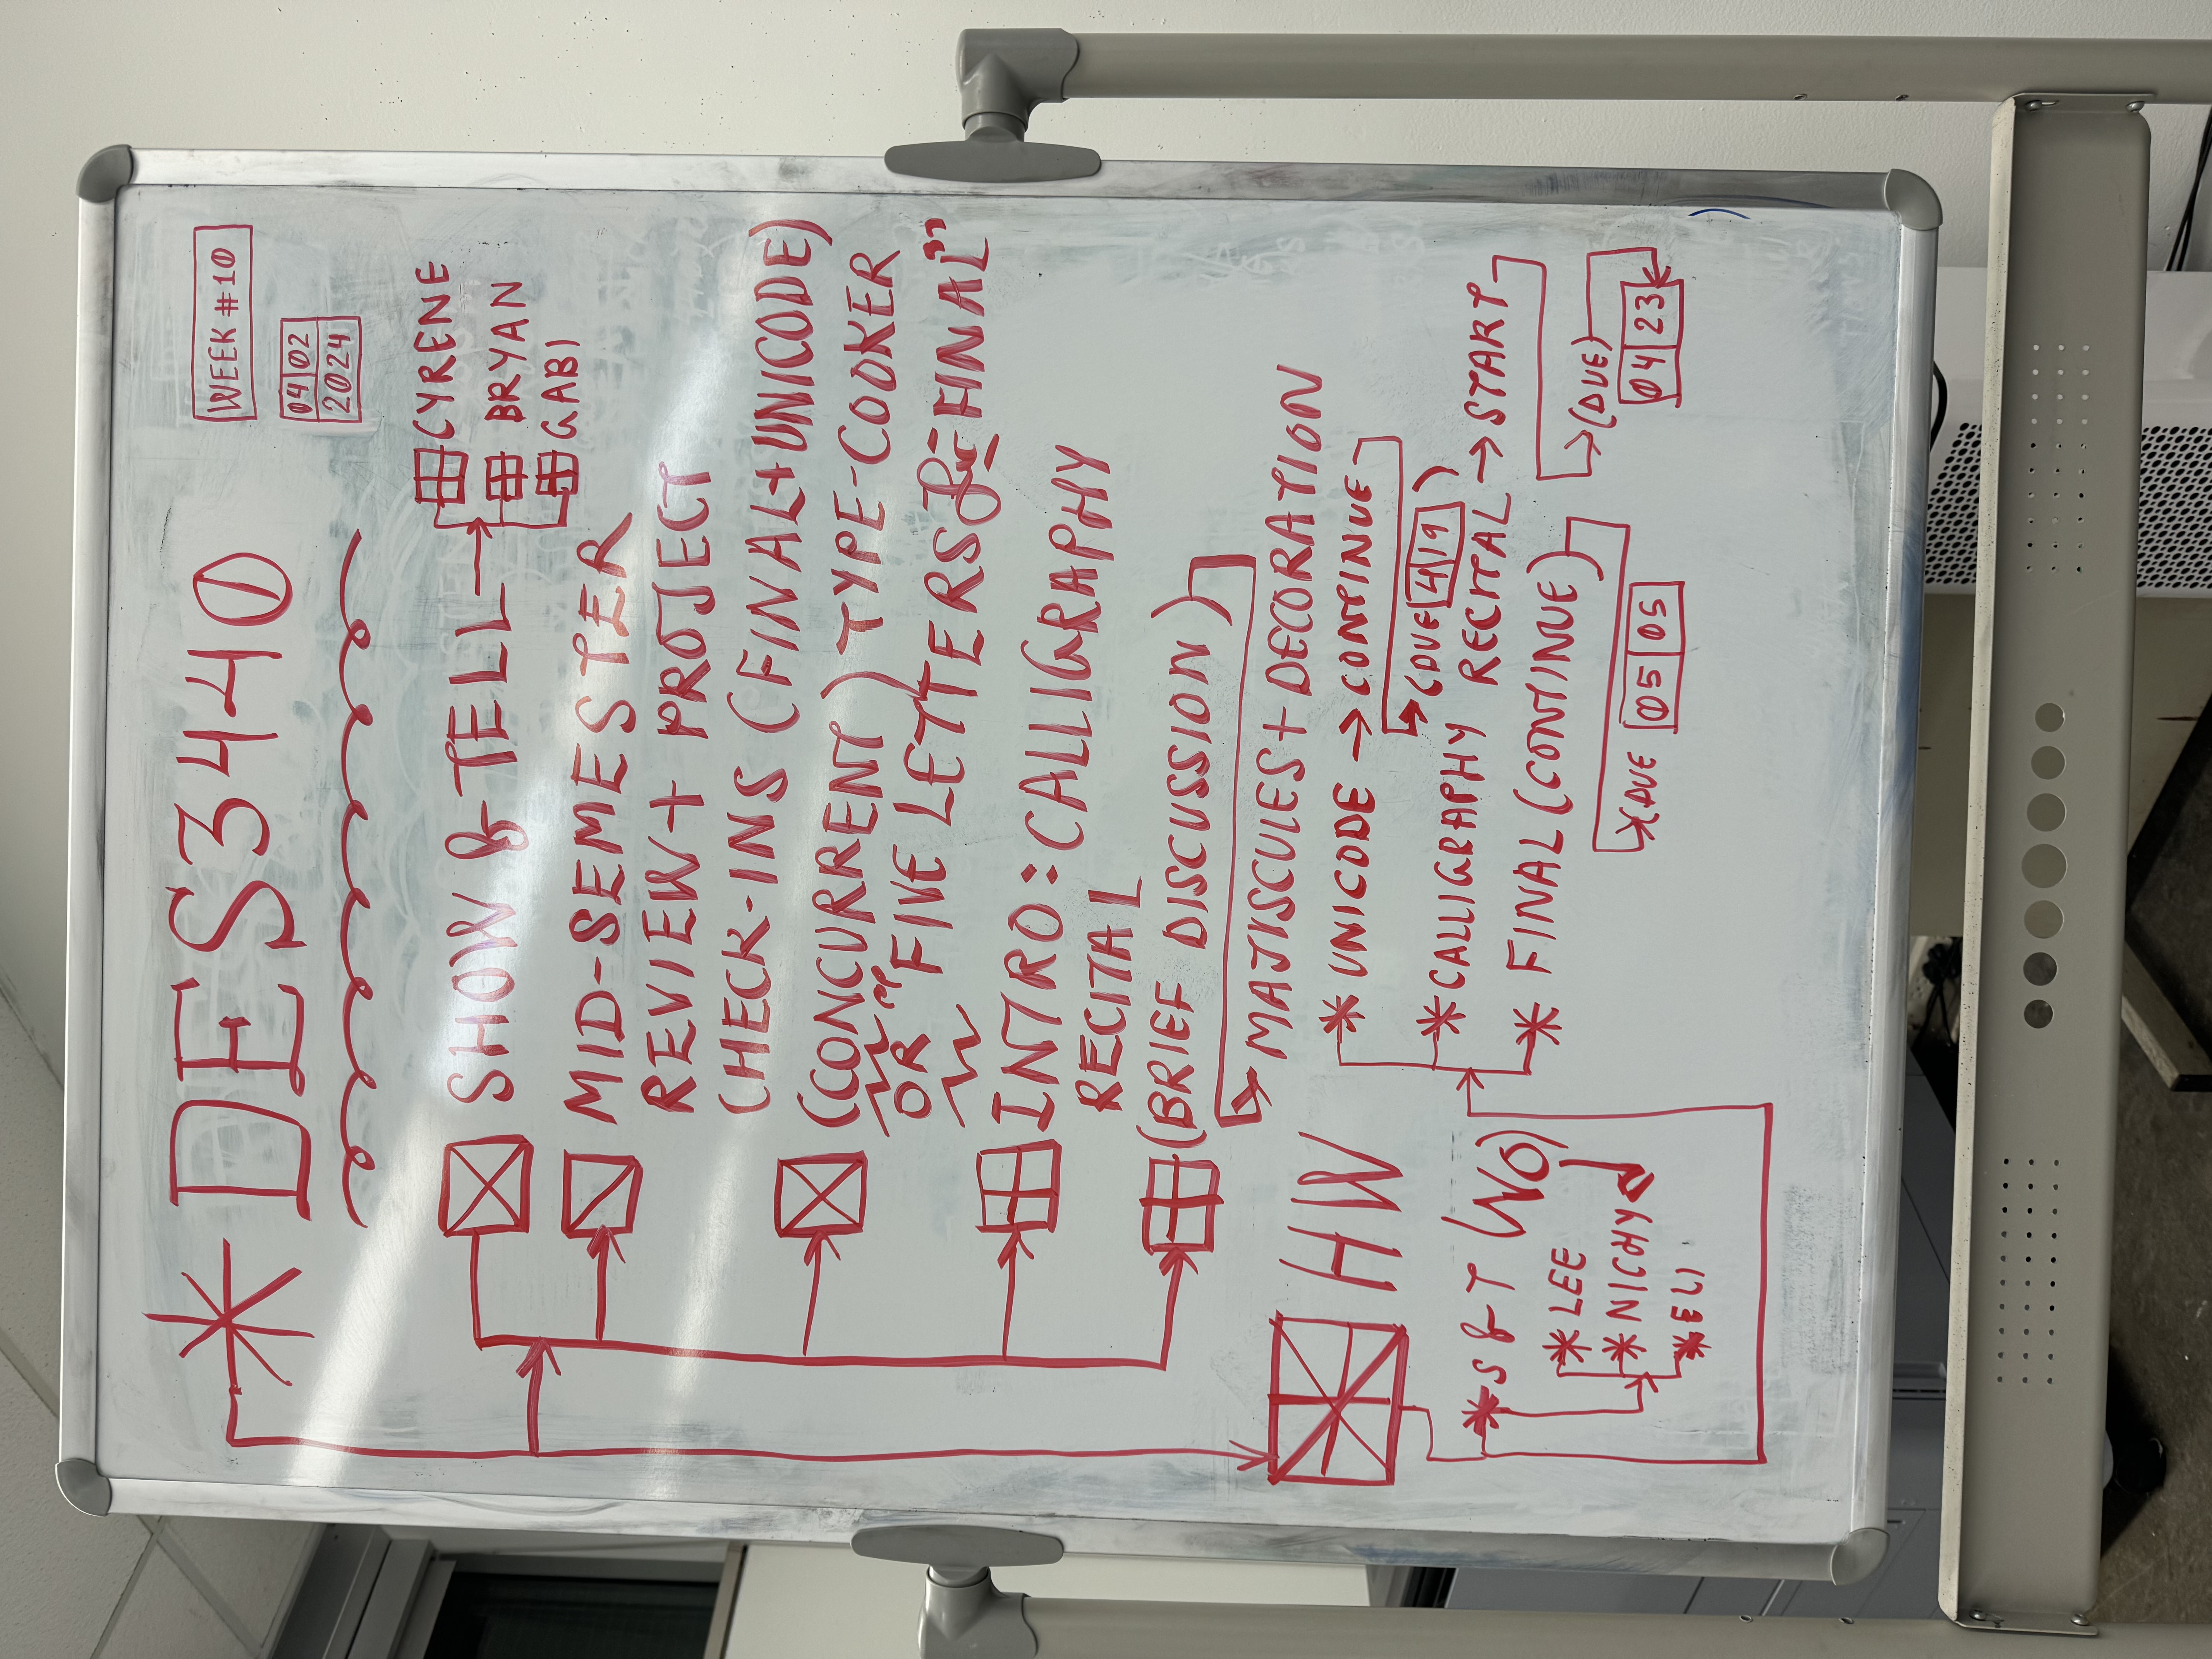 WEEK #10
04 02
2024
* DES3440
SHOW & TELL
CYRENE
BRYAN
GABI
MID-SEMESTER
REVIEW + PROJECT
CHECK-INS (FINAL+UNICODE)
(CONCURRENT) TYPE-COOKER
OR "FIVE LETTERS for FINAL"
INTRO: CALLIGRAPHY
RECITAL
(BRIEF DISCUSSION)
MAJISCULES + DECORATION
HW
* UNICODE → CONTINUE
(DUE 4 19)
* CALLIGRAPHY RECITAL → START
(DUE)
04 23
* FINAL (CONTINUE)
(DUE 05 05
* S & T
* LEE
* NICHY
* ELI